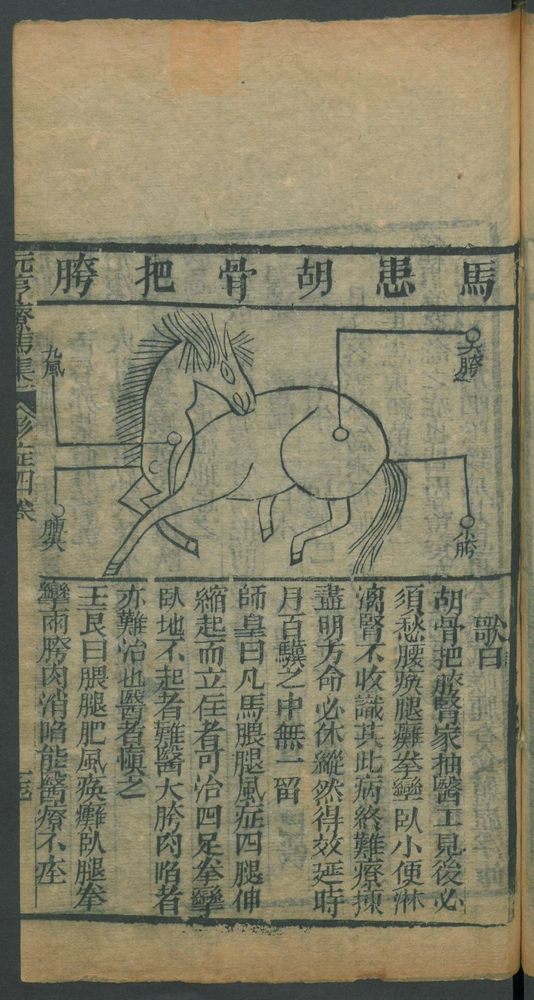 馬患胡骨把胯
大胯
小胯
九風
歌曰
胡骨把胯腎家抽醫工見後必
須愁腰瘓腿癱拳攣臥小便淋
漓腎不收識其此病終難療揀
盡明方命必休縱然得效延時
月百驥之中無一留
師皇曰凡馬腲腿風症四腿伸
縮起而立住者可治四足拳攣
臥地不起者難醫大胯肉陷者
亦難治也醫者慎之
王良曰腲腿肥風瘓癱臥腿拳
攣兩胯肉消陷能醫療不痊
元亨療馬集